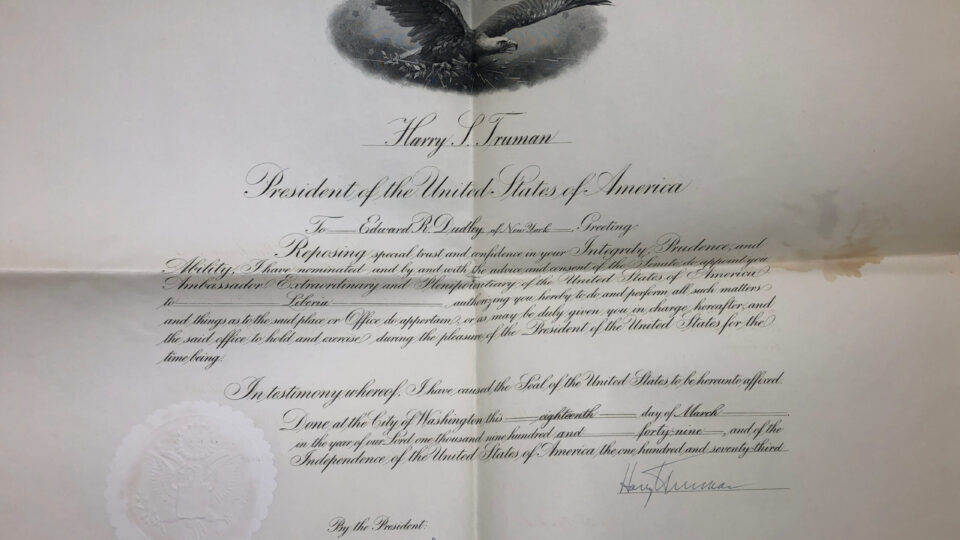 Harry S. Truman
President of the United States of America
To Edward R. Dudley of New York, Greeting:
Reposing special trust and confidence in your Integrity, Prudence, and
Ability, I have nominated and by and with the advice and consent of the Senate do appoint you
Ambassador Extraordinary and Plenipotentiary of the United States of America
to Liberia, authorizing you hereby to do and perform all such matters
and things as to the said place or Office do appertain, or as may be duly given you in charge hereafter, and
the said office to hold and exercise during the pleasure of the President of the United States for the
time being.
In testimony whereof, I have caused the Seal of the United States to be hereunto affixed.
Done at the City of Washington this eighteenth day of March
in the year of our Lord one thousand nine hundred and forty-nine, and of the
Independence of the United States of America the one hundred and seventy-third.
Harry S Truman
By the President: